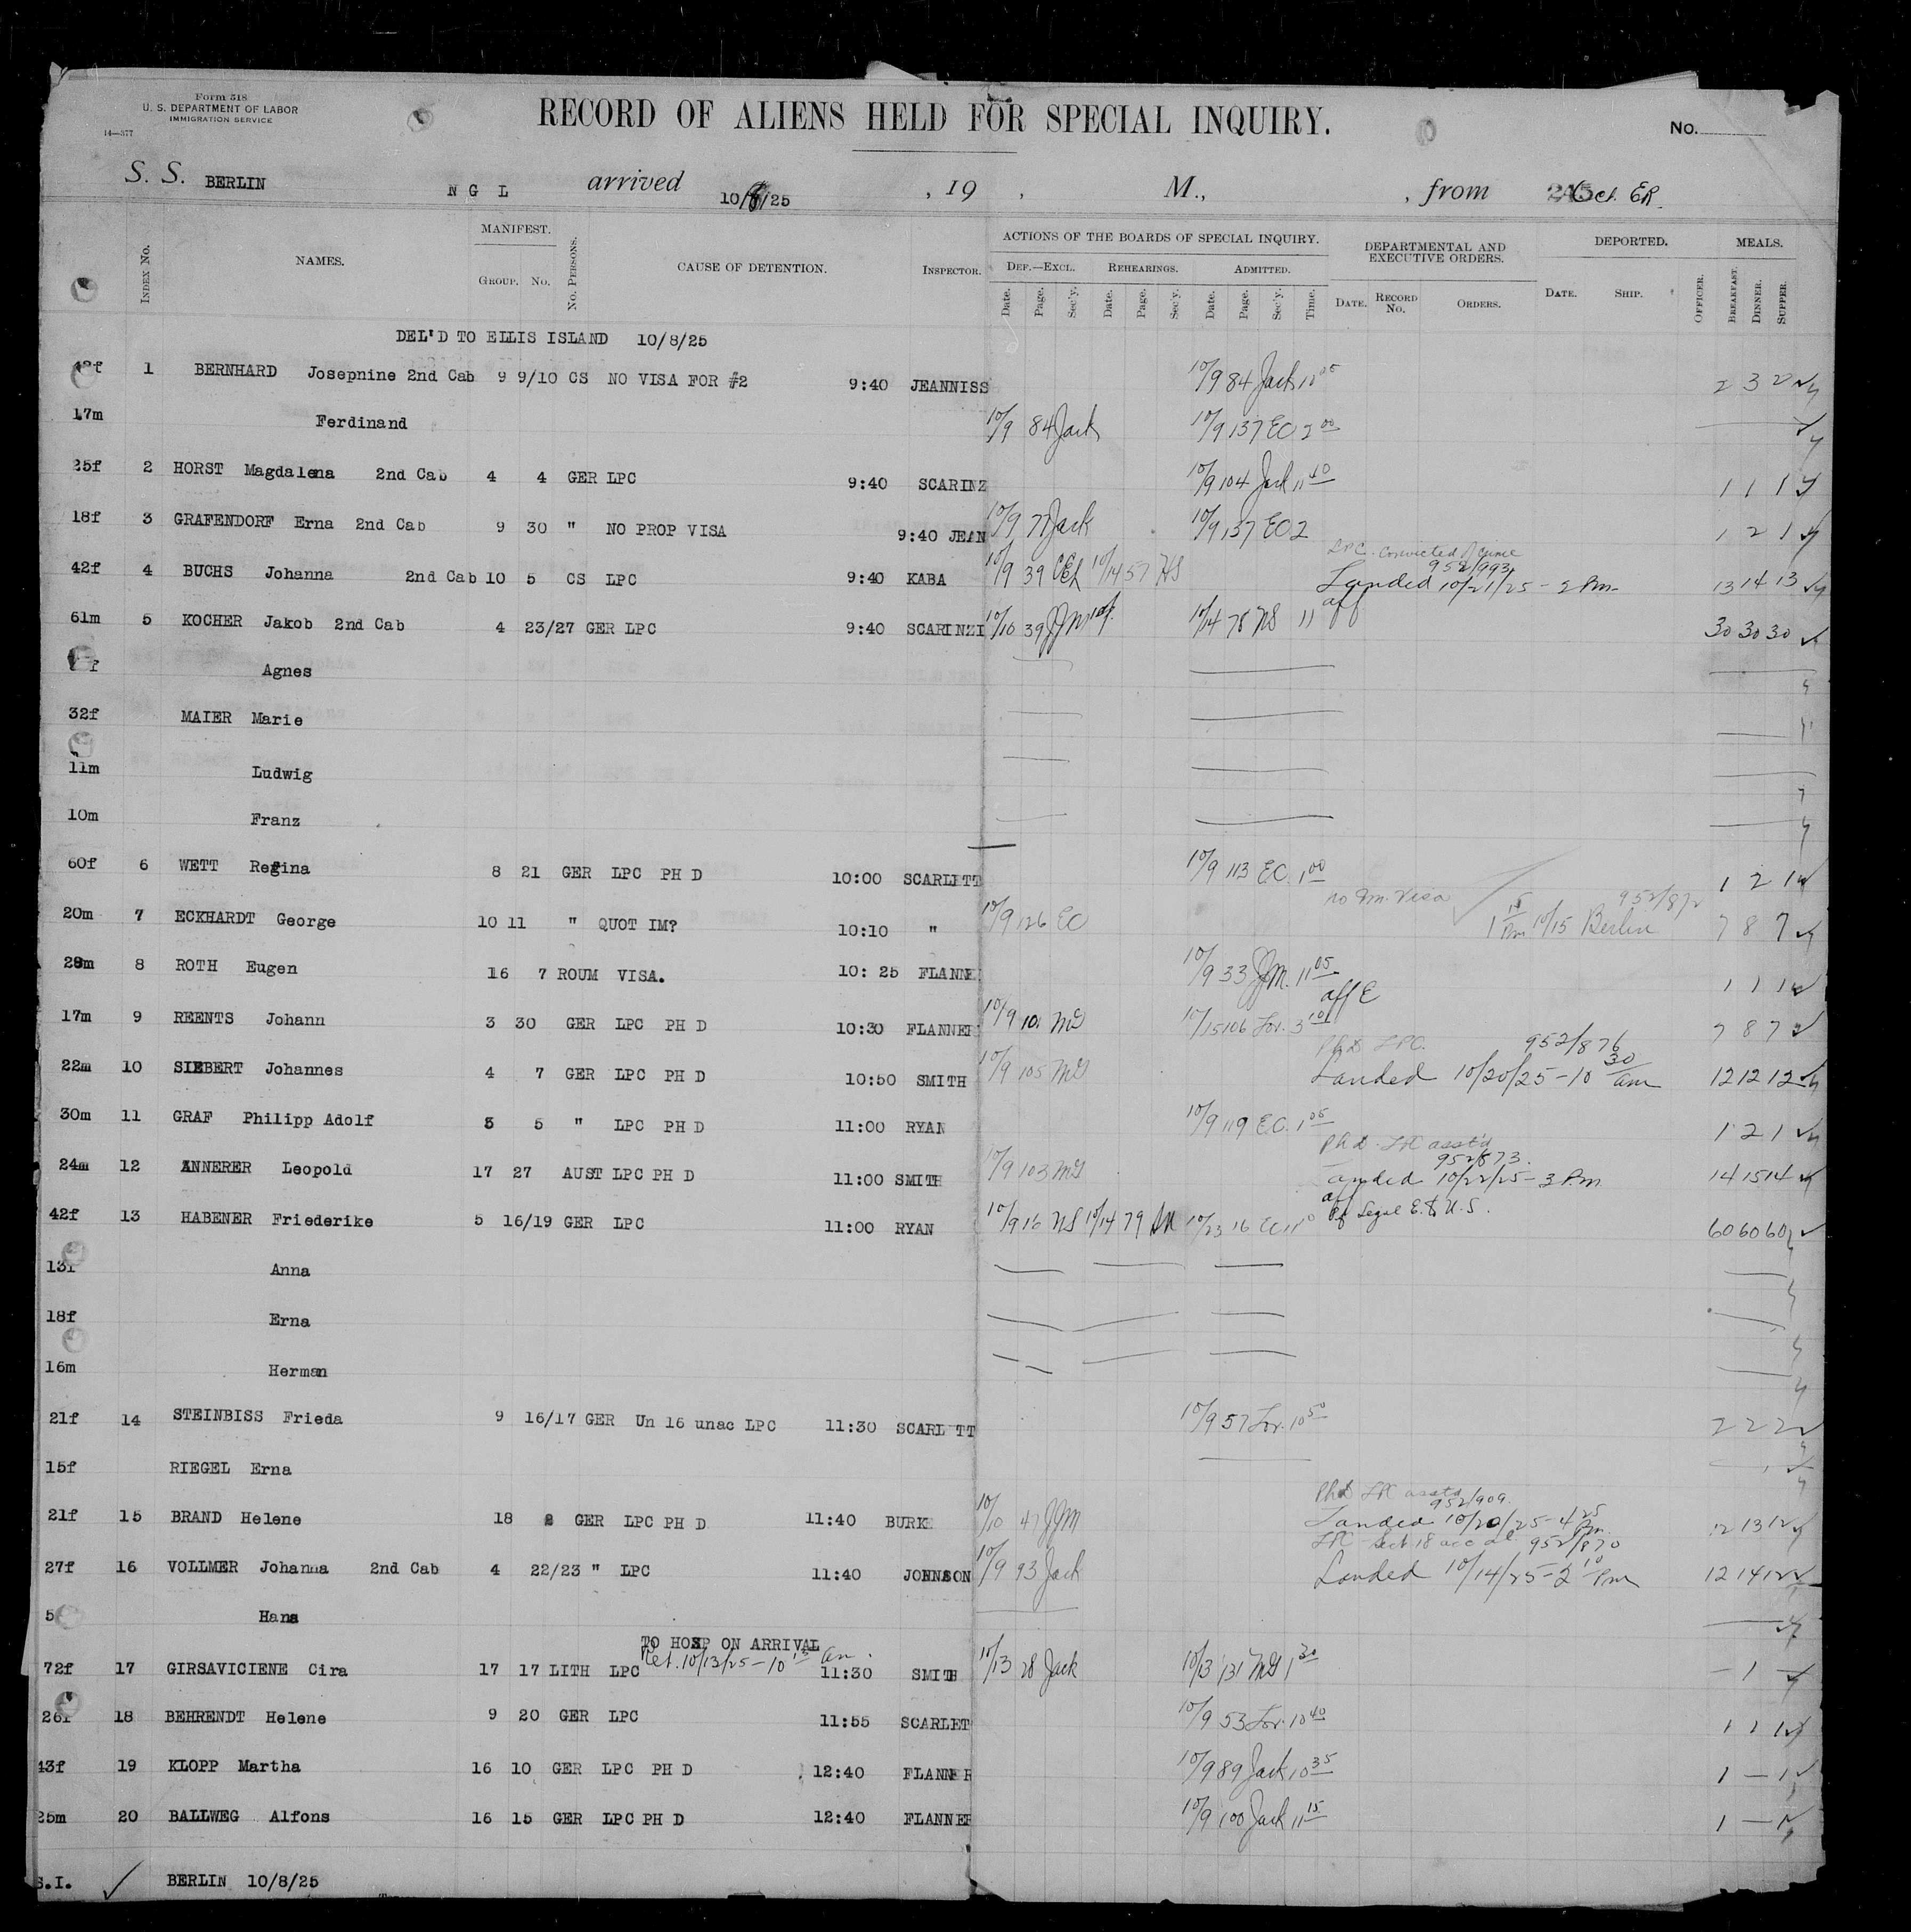 Form 518
U. S. DEPARTMENT OF LABOR
IMMIGRATION SERVICE
14—377
RECORD OF ALIENS HELD FOR SPECIAL INQUIRY.
No.
S. S. BERLIN N G L arrived 10/8/25 , 19 , M., , from Oct. ER.
INDEX No. NAMES. MANIFEST. GROUP. No. No. PERSONS. CAUSE OF DETENTION. INSPECTOR. ACTIONS OF THE BOARDS OF SPECIAL INQUIRY. DEPARTMENTAL AND EXECUTIVE ORDERS. DEPORTED. MEALS.
DEF.—EXCL. REHEARINGS. ADMITTED.
Date. Page. Sec'y. Date. Page. Sec'y. Date. Page. Sec'y. Time. DATE. RECORD No. ORDERS. DATE. SHIP. OFFICER. BREAKFAST. DINNER. SUPPER.
DEL'D TO ELLIS ISLAND 10/8/25
1 BERNHARD Josepnine 2nd Cab 9 9/10 CS NO VISA FOR #2 9:40 JEANNISS 10/9 84 Jack 2 3 2
17m Ferdinand 10/9 84 Jack 10/9 137 EC 2 00
25f 2 HORST Magdalena 2nd Cab 4 4 GER LPC 9:40 SCARINZ 10/9 104 Jack 11 40 1 1 1
18f 3 GRAFENDORF Erna 2nd Cab 9 30 " NO PROP VISA 9:40 JEAN 10/9 Jack 10/9 137 EC 2 1 2 1
LPC. convicted of crime
952/993
42f 4 BUCHS Johanna 2nd Cab 10 5 CS LPC 9:40 KABA 10/9 39 10/14 57 NS Landed 10/21/25 - 2 Pm 13 14 13
aff
61m 5 KOCHER Jakob 2nd Cab 4 23/27 GER LPC 9:40 SCARINZI 10/10 39 JJM 10/14 78 NS 11 30 30 30
Agnes
32f MAIER Marie
11m Ludwig
10m Franz
60f 6 WETT Regina 8 21 GER LPC PH D 10:00 SCARLETT 10/9 113 EC. 1 00 1 2 1
no Im. Visa 952/872
20m 7 ECKHARDT George 10 11 " QUOT IM? 10:10 " 10/9 126 EC 10/15 Berlin 7 8 7
28m 8 ROTH Eugen 16 7 ROUM VISA. 10: 25 FLANNE 10/9 33 JJM. 11 05 1 1 1
aff E
17m 9 REENTS Johann 3 30 GER LPC PH D 10:30 FLANNER 10/9 101 MG 10/15 106 Lov. 3 10 7 8 7
PhD LPC. 952/876
22m 10 SIEBERT Johannes 4 7 GER LPC PH D 10:50 SMITH 10/9 105 MG Landed 10/20/25 - 10 30 am 12 12 12
30m 11 GRAF Philipp Adolf 5 " LPC PH D 11:00 RYAN 10/9 119 EC. 1 05 1 2 1
PhD - LPC asst'd
952/873.
24m 12 ANNERER Leopold 17 27 AUST LPC PH D 11:00 SMITH 10/9 103 MG Landed 10/22/25 - 3 P.m 14 15 14
aff
of Legal E. to U.S.
42f 13 HABENER Friederike 5 16/19 GER LPC 11:00 RYAN 10/9 16 NS 10/14 79 10/23 16 EC 60 60 60
13f Anna
18f Erna
16m Herman
21f 14 STEINBISS Frieda 9 16/17 GER Un 16 unac LPC 11:30 SCARL TT 10/9 57 Lov. 10 50 2 2 2
15f RIEGEL Erna
PhD LPC asstd
952/909.
21f 15 BRAND Helene 18 GER LPC PH D 11:40 BURKE 10/10 47 JJM Landed 10/20/25 - 4 25 Pm. 12 13 12
LPC Sect. 18 952/870
27f 16 VOLLMER Johanna 2nd Cab 4 22/23 " LPC 11:40 JOHNSON 10/9 93 Jack Landed 10/14/25 - 2 10 Pm 12 14 12
5 Hans
TO HOSP ON ARRIVAL
Ret. 10/13/25 - 10 15 am.
72f 17 GIRSAVICIENE Cira 17 17 LITH LPC 11:30 SMITH 10/13 28 Jack 10/13 131 MG 1 30 — 1 —
26f 18 BEHRENDT Helene 9 20 GER LPC 11:55 SCARLET 10/9 53 Lov. 10 40 1 1 1
43f 19 KLOPP Martha 16 10 GER LPC PH D 12:40 FLANNER 10/9 89 Jack 10 35 1 — 1
25m 20 BALLWEG Alfons 16 15 GER LPC PH D 12:40 FLANNER 10/9 100 Jack 11 15 1 — 1
S.I. BERLIN 10/8/25